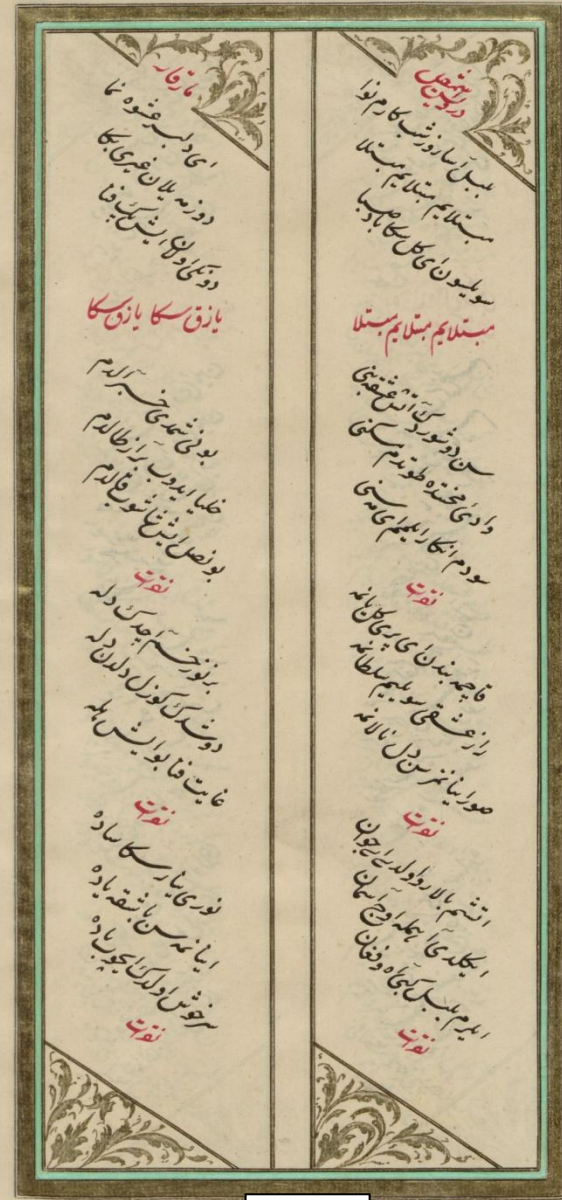 درویش اسمعیل
بلبل آسا روز شب کارم نوا
مبتلایم مبتلایم مبتلا
سویلسون ای گل سکا باد صبا
مبتلایم مبتلایم مبتلا
سن دوشوردك آتش عشقه بنی
وادی محنتده طوتدم مسکنی
سودم انکار ایلمم ای مه سنی
نقرت
قاچمه بندن ای پری گل یانمه
راز عشقی سویلیم سلطانمه
صور اینانمزسن دل نالانمه
نقرت
آتشم بالا رو اولدی
ایکلدی آهمله اوج آسمان
ایلرم بلبل کبی آه و فغان
نقرت
ماهر قار
ای دلبر عشوه نما
دوزمه یلان غیری بکا
دونکی اولان ایش پك فنا
یازق سکا یازق سکا
بونی شمدی خبر آلدم
خلیا ایدوب آز طالدم
بو نصل ایش شاشوب قالدم
نقرت
بر نوزخم آچدك دله
دوشدك كوزل دلدن دله
غایت فنا بو ایش هله
نقرت
نوری یانار سکا ساده
اینانمه سن باشقه یاده
سرخوش اولدك ایچوب باده
نقرت